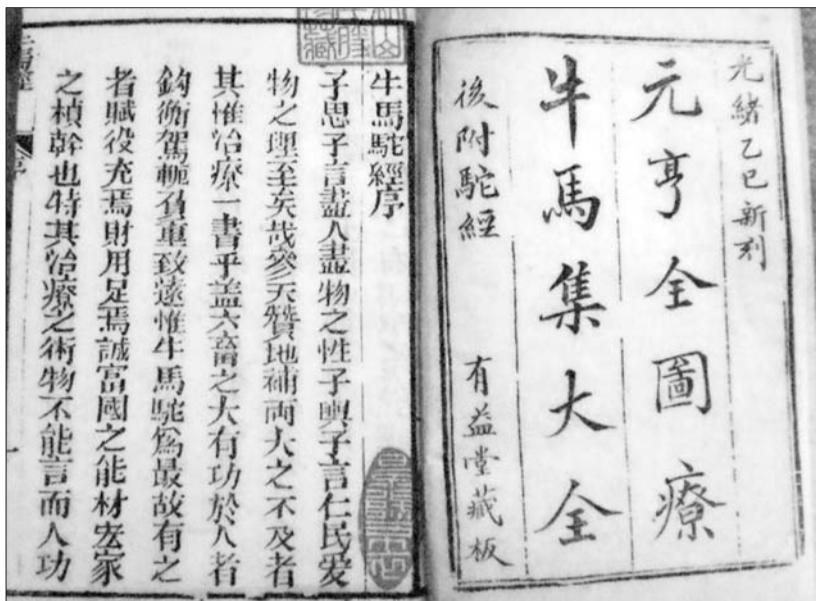 光緒乙巳新刻
元亨全圖療
牛馬集大全
後附駝經
有益堂藏板
牛馬駝經序
子思子言盡人盡物之性子輿子言仁民愛
物之理至矣哉參天贊地補兩大之不及者
其惟治療一書乎盖六畜之大有功於人者
鈎衡駕軛負重致遠惟牛馬駝為最故有之
者賦役充焉財用足焉誠富國之能材宏家
之楨幹也特其治療之術物不能言而人功
序